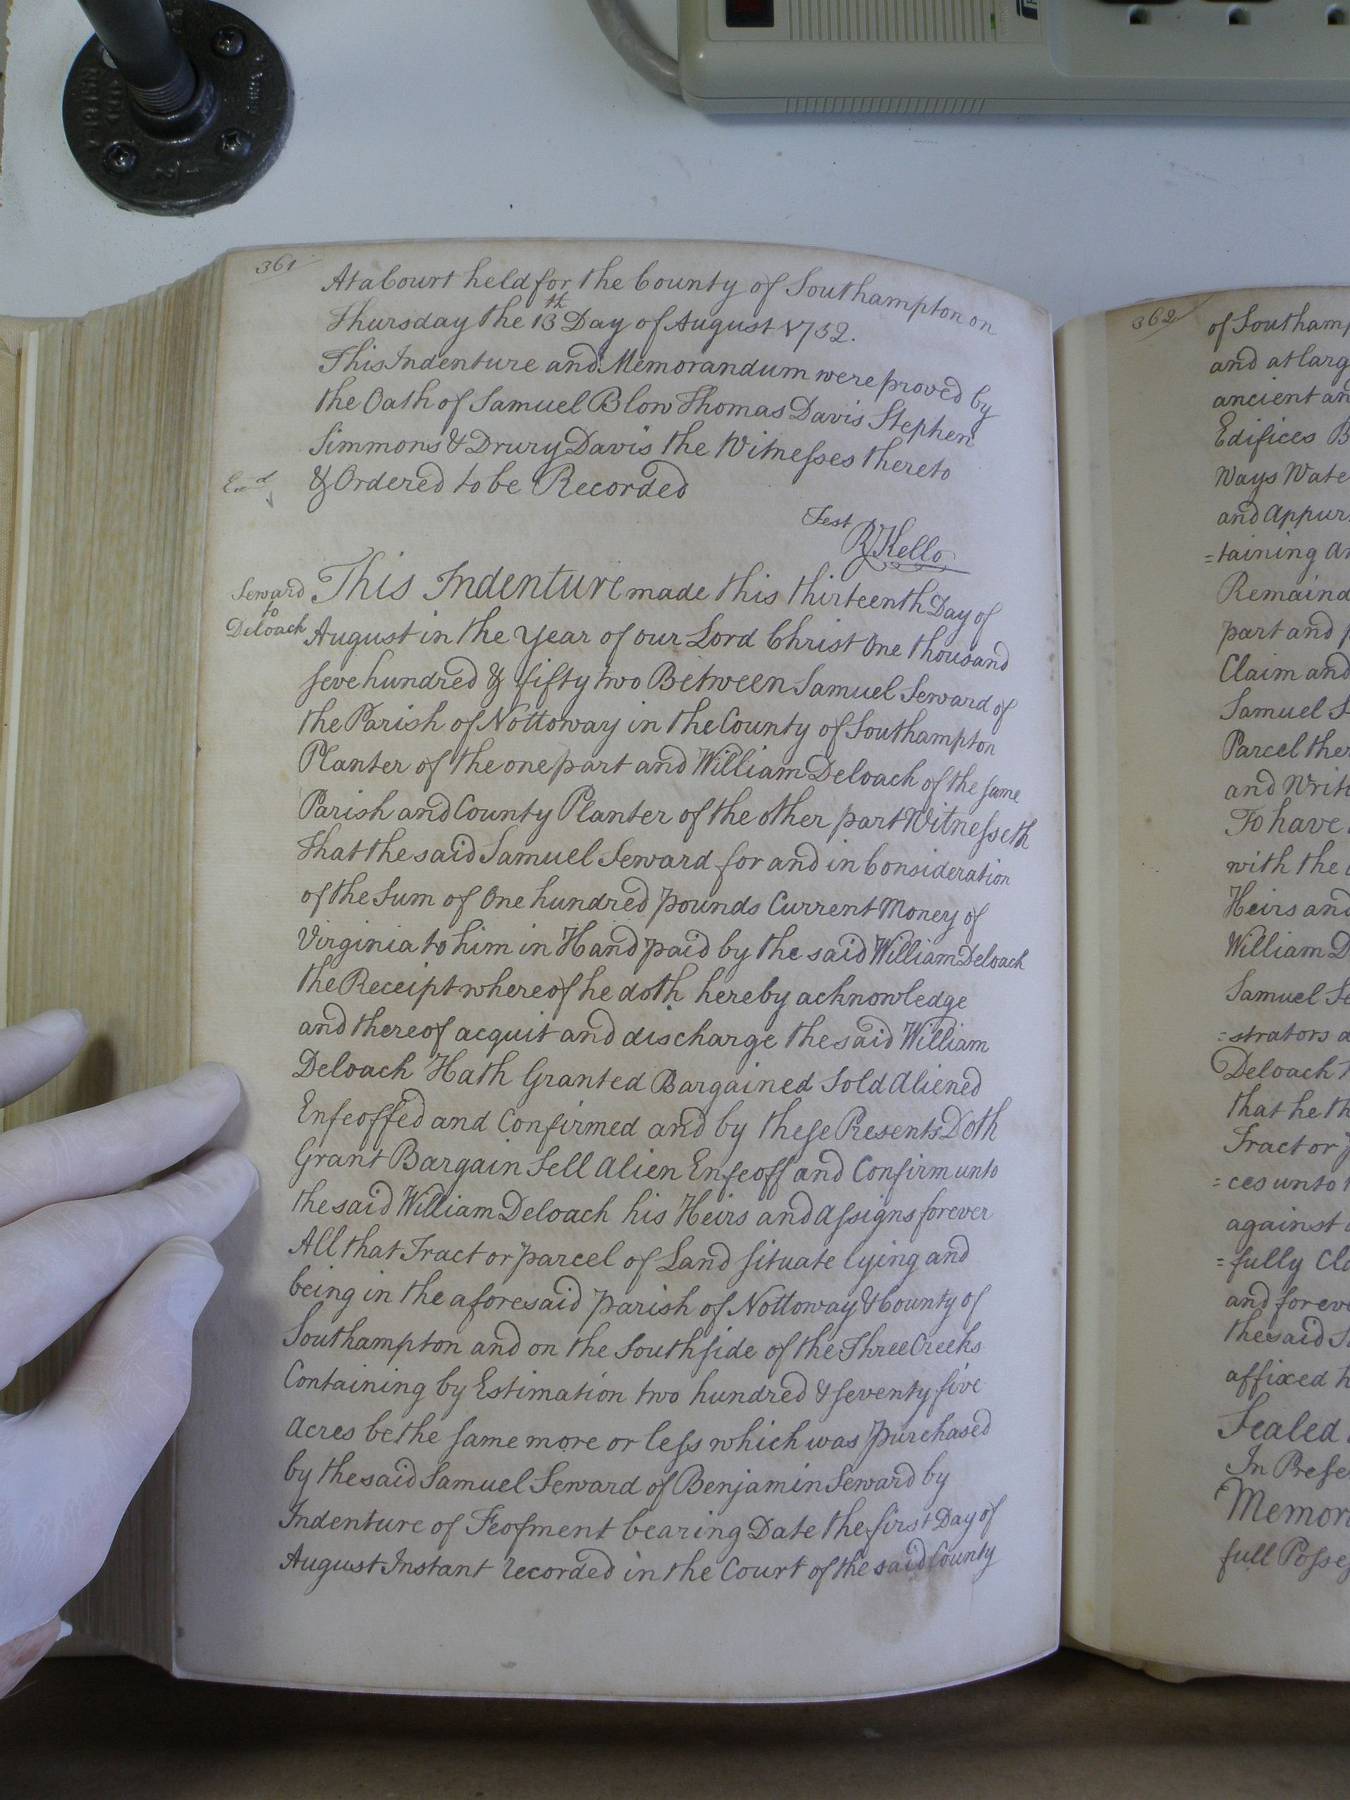 361
At a Court held for the County of Southampton on
Thursday the 13th Day of August 1752.
This Indenture and Memorandum were proved by
the Oath of Samuel Blow Thomas Davis Stephen
Simmons & Drury Davis the Witnesses thereto
Exd
& Ordered to be Recorded
Test
R Kello
Seward
to
Deloach
This Indenture made this thirteenth Day of
August in the Year of our Lord Christ One thousand
seve hundred & fifty two Between Samuel Seward of
the Parish of Nottoway in the County of Southampton
Planter of the one part and William Deloach of the same
Parish and County Planter of the other part Witnesseth
That the said Samuel Seward for and in Consideration
of the Sum of One hundred pounds Current Money of
Virginia to him in Hand paid by the said William Deloach
the Receipt whereof he doth hereby acknowledge
and thereof acquit and discharge the said William
Deloach Hath Granted Bargained Sold Aliened
Enfeoffed and Confirmed and by these Presents Doth
Grant Bargain Sell Alien Enfeoff and Confirm unto
the said William Deloach his Heirs and Assigns forever
All that Tract or parcel of Land situate lying and
being in the aforesaid parish of Nottoway & County of
Southampton and on the South side of the Three Creeks
Containing by Estimation two hundred & seventy five
Acres be the same more or less which was purchased
by the said Samuel Seward of Benjamin Seward by
Indenture of Feofment bearing Date the first Day of
August Instant recorded in the Court of the said County
362
of Southamp
and at larg
ancient an
Edifices B
Ways Wate
and Appur
=taining an
Remaind
part and p
Claim and
Samuel S
Parcel ther
and Writi
To have
with the
Heirs and
William D
Samuel Se
=strators a
Deloach
that he th
Tract or p
=ces unto
against
=fully Cla
and forev
the said S
affixed h
Sealed
In Prese
Memor
full Posse